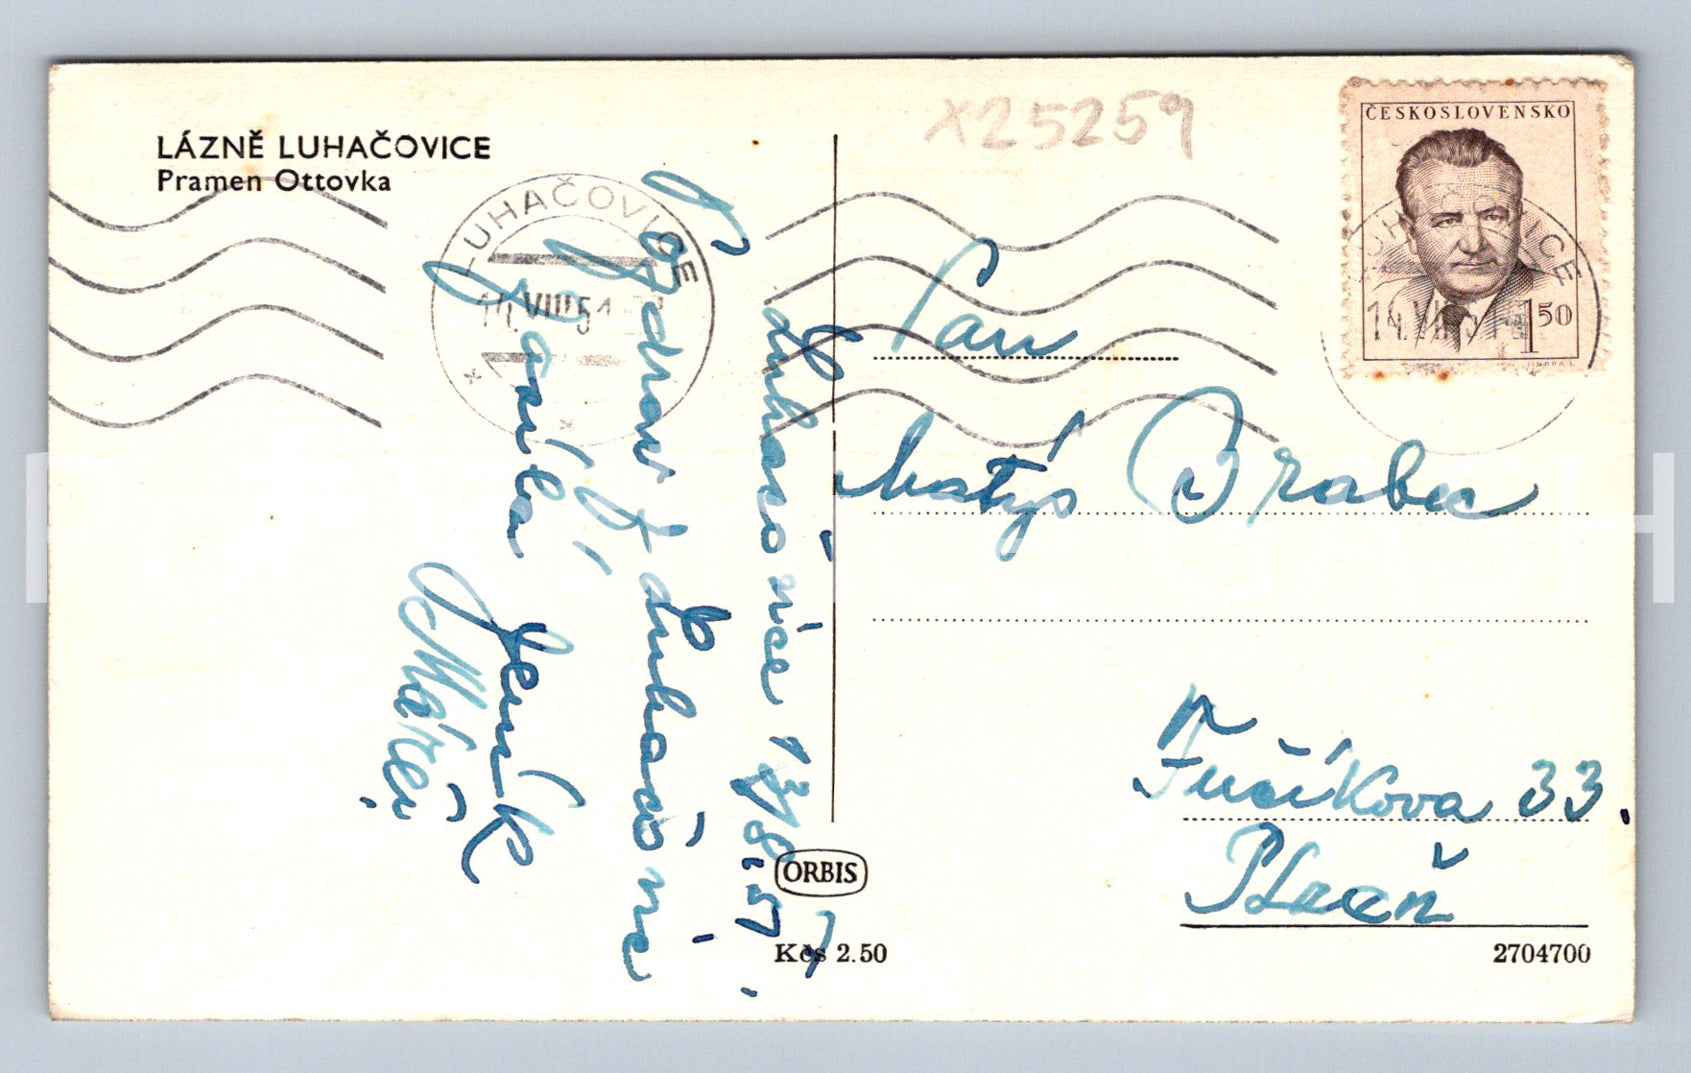 LÁZNĚ LUHAČOVICE
Pramen Ottovka
X25259
ČESKOSLOVENSKO
1 50
LUHAČOVICE
14.VIII 51
LUHAČOVICE
14.VIII
Luhačovice 13/8.51.
Pozdrav z Luhačovic
Jeník
Pan
Matýs Brabec
Fučíkova 33.
Plzeň
ORBIS
Kčs 2.50
2704700